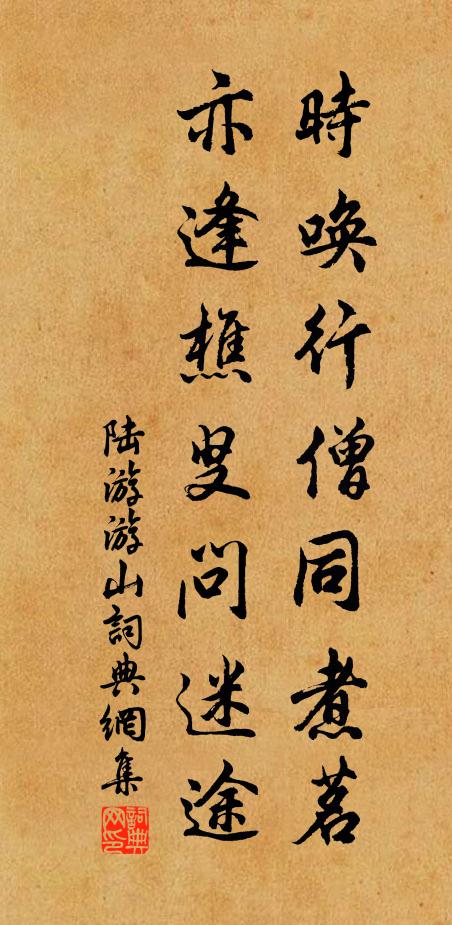 時唤行僧同煮茗
亦逢樵叟問迷途
陆游游山詞典網集
詞典網印